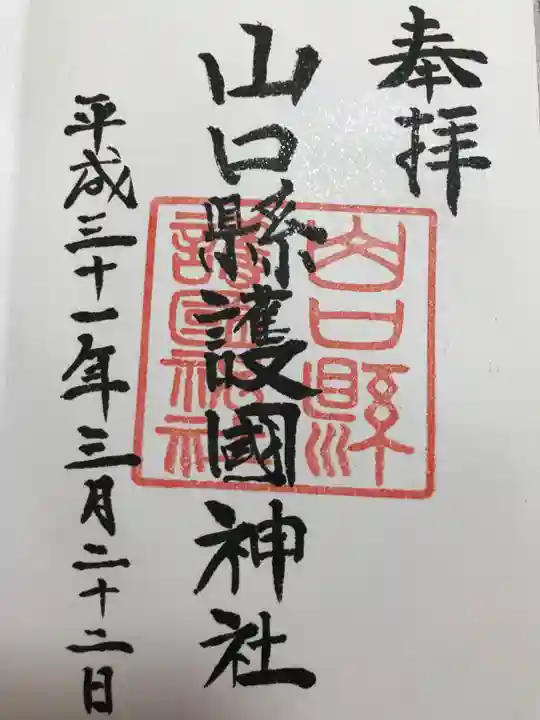 奉拝
山口縣護國神社
平成三十一年三月二十二日
山口縣
護國神社